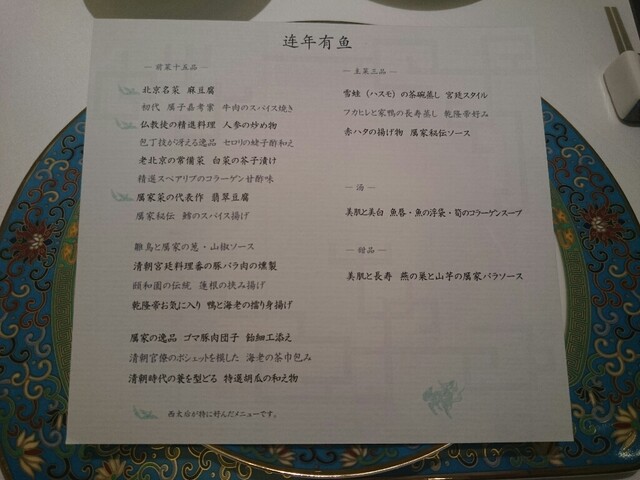 连年有鱼
— 前菜十五品 —
北京名菜 麻豆腐
初代 厲子嘉考案 牛肉のスパイス焼き
仏教徒の精進料理 人参の炒め物
包丁技が冴える逸品 セロリの蝦子酢和え
老北京の常備菜 白菜の芥子漬け
精選スペアリブのコラーゲン甘酢味
厲家菜の代表作 翡翠豆腐
厲家秘伝 鱈のスパイス揚げ
雛鳥と厲家の葱・山椒ソース
清朝宮廷料理番の豚バラ肉の燻製
頤和園の伝統 蓮根の挟み揚げ
乾隆帝お気に入り 鴨と海老の擂り身揚げ
厲家の逸品 ゴマ豚肉団子 飴細工添え
清朝官僚のポシェットを模した 海老の茶巾包み
清朝時代の簑を型どる 特選胡瓜の和え物
西太后が特に好んだメニューです。
— 主菜三品 —
雪蛙（ハスモ）の茶碗蒸し 宮廷スタイル
フカヒレと家鴨の長寿蒸し 乾隆帝好み
赤ハタの揚げ物 厲家秘伝ソース
— 湯 —
美肌と美白 魚唇・魚の浮袋・筍のコラーゲンスープ
— 甜品 —
美肌と長寿 燕の巣と山芋の厲家バラソース